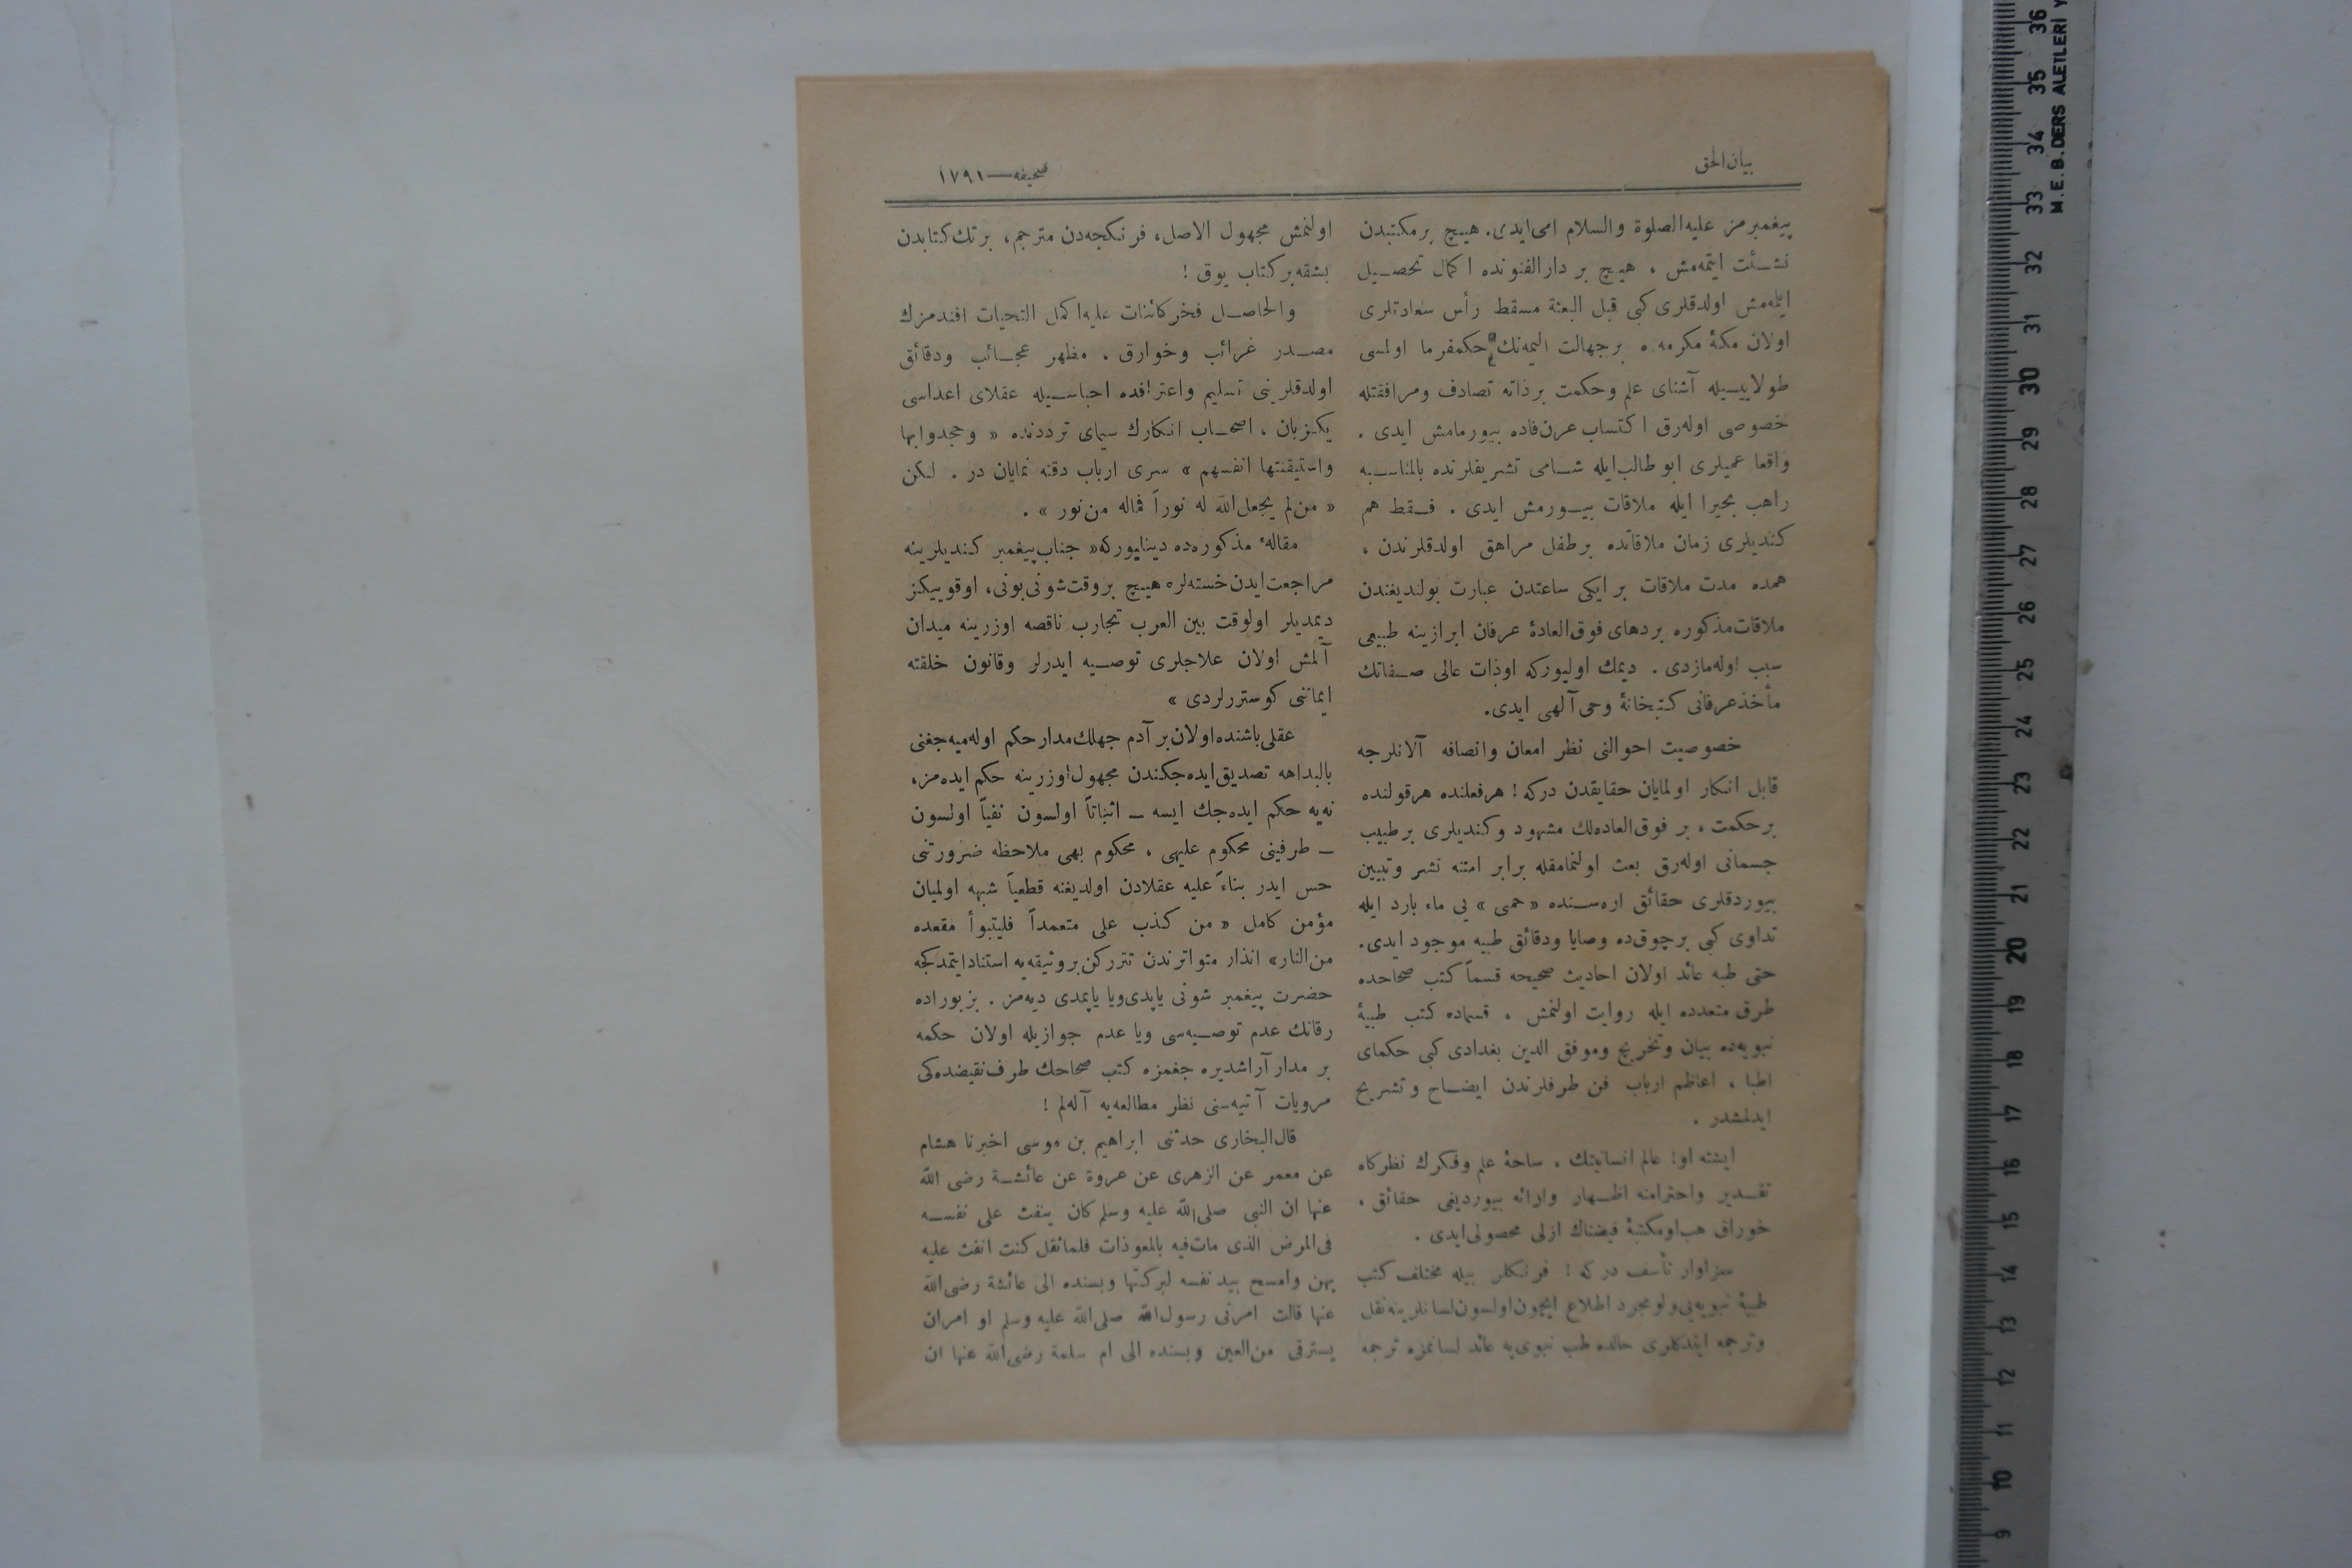 بيان الحق
صحيفه — ١٧٩١
پيغمبرمز عليه الصلوة والسلام امی ايدی. هيچ بر مكتبدن
نشئت ايتمه‌مش ، هيچ بر دار الفنونده اكمال تحصيل
ايله‌مش اولدقلری كبی قبل البعثة مسقط رأس سعادتلری
اولان مكهٔ مكرمه ه بر جهالت اليمه‌نك حكمفرما اولمسی
طولاييسيله آشنای علم وحكمت بر ذاته تصادف ومرافقتله
خصوصی اوله‌رق اكتساب عرفاده بيورمامش ايدی .
واقعا عميلری ابو طالب ايله شامی تشريفلرنده بالمناسبه
راهب بحيرا ايله ملاقات بيورمش ايدی . فقط هم
كنديلری زمان ملاقاتده بر طفل مراهق اولدقلرندن ،
همده مدت ملاقات بر ايكی ساعتدن عبارت بولنديغندن
ملاقات مذكوره بر دهای فوق العادهٔ عرفان ابرازينه طبيعی
سبب اوله‌مازدی . ديمك اوليوركه اوذات عالی صفاتك
مأخذ عرفانی كتبخانهٔ وحی آلهی ايدی.
خصوصيت احوالنی نظر امعان وانصافه آلانلرجه
قابل انكار اولمايان حقايقدن دركه ! هر فعلنده هر قولنده
بر حكمت ، بر فوق العاده‌لك مشهود وكنديلری بر طبيب
جسمانی اوله‌رق بعث اولنمامقله برابر امتنه نشر وتبيين
بيوردقلری حقائق اره‌سنده « حمی » يی ماء بارد ايله
تداوی كبی بر چوق‌ده وصايا ودقائق طبيه موجود ايدی.
حتی طبه عائد اولان احاديث صحيحه قسماً كتب صحاحده
طرق متعدده ايله روايت اولنمش ، قسماده كتب طبيهٔ
نبويه‌ده بيان وتخريج وموفق الدين بغدادی كبی حكمای
اطبا ، اعاظم ارباب فن طرفلرندن ايضاح وتشريح
ايدلمشدر .
ايشته او! عالم انسانيتك ، ساحهٔ علم وفكرك نظركاه
تقدير واحترامنه اظهار وارائه بيورديغی حقائق ،
خوراق هب او مكتبهٔ فيضناك ازلی محصولی ايدی .
سزاوار تأسف دركه ! فرنكلر بيله مختلف كتب
طبيهٔ نبويه‌يی ولو مجرد اطلاع ايچون اولسون لسانلرينه نقل
وترجمه ايتدكلری حالده طب نبوی‌يه عائد لسانمزه ترجمه
اولنمش مجهول الاصل، فرنكجه‌دن مترجم، بر تك كتابدن
بشقه بر كتاب يوق !
والحاصل فخر كائنات عليه اكمل التحيات افندمزك
مصدر غرائب وخوارق ، مظهر عجائب ودقائق
اولدقلرينی تسليم واعترافده احباسيله عقلای اعداسی
يكزبان ، اصحاب انكارك سيمای ترددنده « وجحدوا بها
واستيقنتها انفسهم » سری ارباب دقته نمايان در . لكن
« من لم يجعل الله له نوراً فماله من نور » .
مقالهٔ مذكوره‌ده دينليوركه « جناب پيغمبر كنديلرينه
مراجعت ايدن خسته‌لره هيچ بر وقت شونی بونی، اوقوييكز
ديمديلر اولوقت بين العرب تجارب ناقصه اوزرينه ميدان
آلمش اولان علاجلری توصيه ايدرلر وقانون خلقته
ايماننی كوسترلردی »
عقلی باشنده اولان بر آدم جهلك مدار حكم اوله‌ميه‌جغنی
بالبداهه تصديق ايده‌جكندن مجهول اوزرينه حكم ايده‌مز،
نه‌يه حكم ايده‌جك ايسه — اثباتاً اولسون نفياً اولسون
— طرفينی محكوم عليهی ، محكوم بهی ملاحظه ضرورتنی
حس ايدر بناءً عليه عقلادن اولديغنه قطعياً شبهه اولميان
مؤمن كامل « من كذب علی متعمداً فليتبوأ مقعده
من النار» انذار متواترندن تتر ركن بر وثيقه‌يه استناد ايتمدكجه
حضرت پيغمبر شونی ياپدی ويا ياپمدی ديه‌مز . بز بوراده
رقانك عدم توصيه‌سی ويا عدم جوازيله اولان حكمه
بر مدار آراشديره جغمزه كتب صحاحك طرف نقيضده‌كی
مرويات آتيه‌سنی نظر مطالعه‌يه آلەلم !
قال البخاری حدثنی ابراهيم بن موسی اخبرنا هشام
عن معمر عن الزهری عن عروة عن عائشة رضی الله
عنها ان النبی صلی الله عليه وسلم كان ينفث علی نفسه
فی المرض الذی مات فيه بالمعوذات فلما ثقل كنت انفث عليه
بهن وامسح بيد نفسه لبركتها وبسنده الی عائشة رضی الله
عنها قالت امرنی رسول الله صلی الله عليه وسلم او امران
يسترقی من العين وبسنده الی ام سلمة رضی الله عنها ان
36
M.E.B. DERS ALETLERİ Y
35
34
33
32
31
30
29
28
27
26
25
24
23
22
21
20
19
18
17
16
15
14
13
12
11
10
9